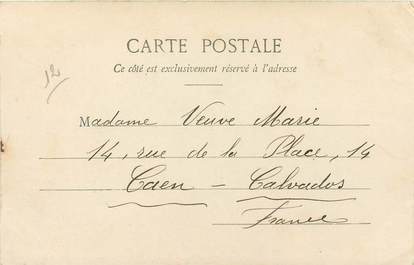 12
CARTE POSTALE
Ce côté est exclusivement réservé à l'adresse
Madame Veuve Marie
14, rue de la Place, 14
Caen - Calvados
France